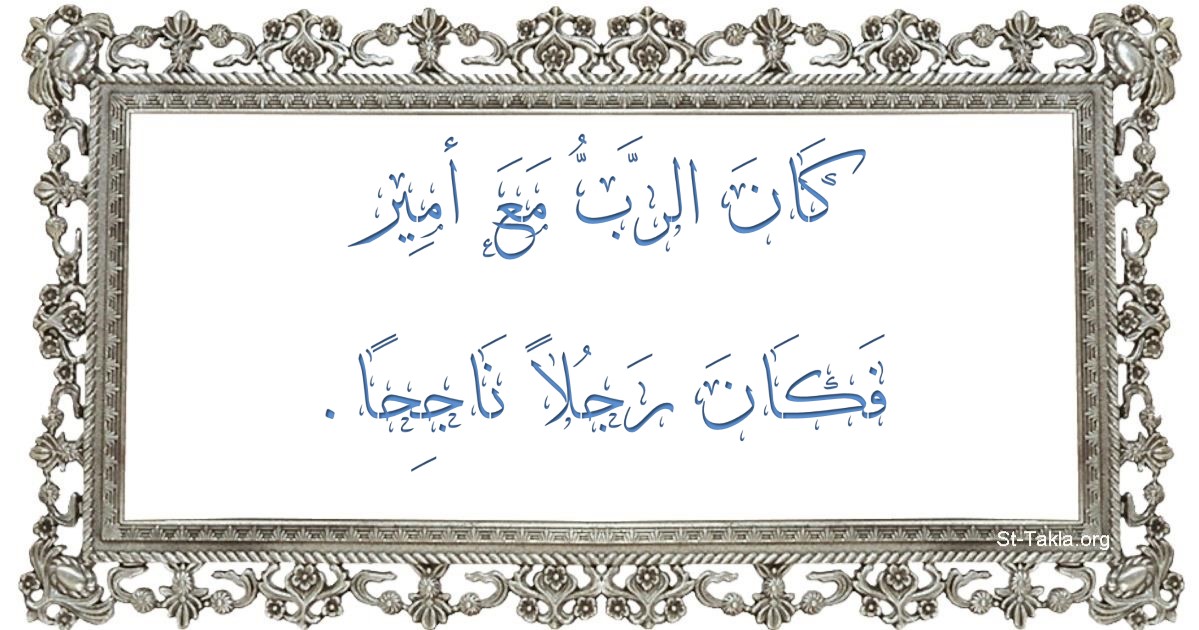 كَانَ الرَّبُّ مَعَ أمِير
فَكَانَ رَجُلاً نَاجِحًا .
St-Takla.org